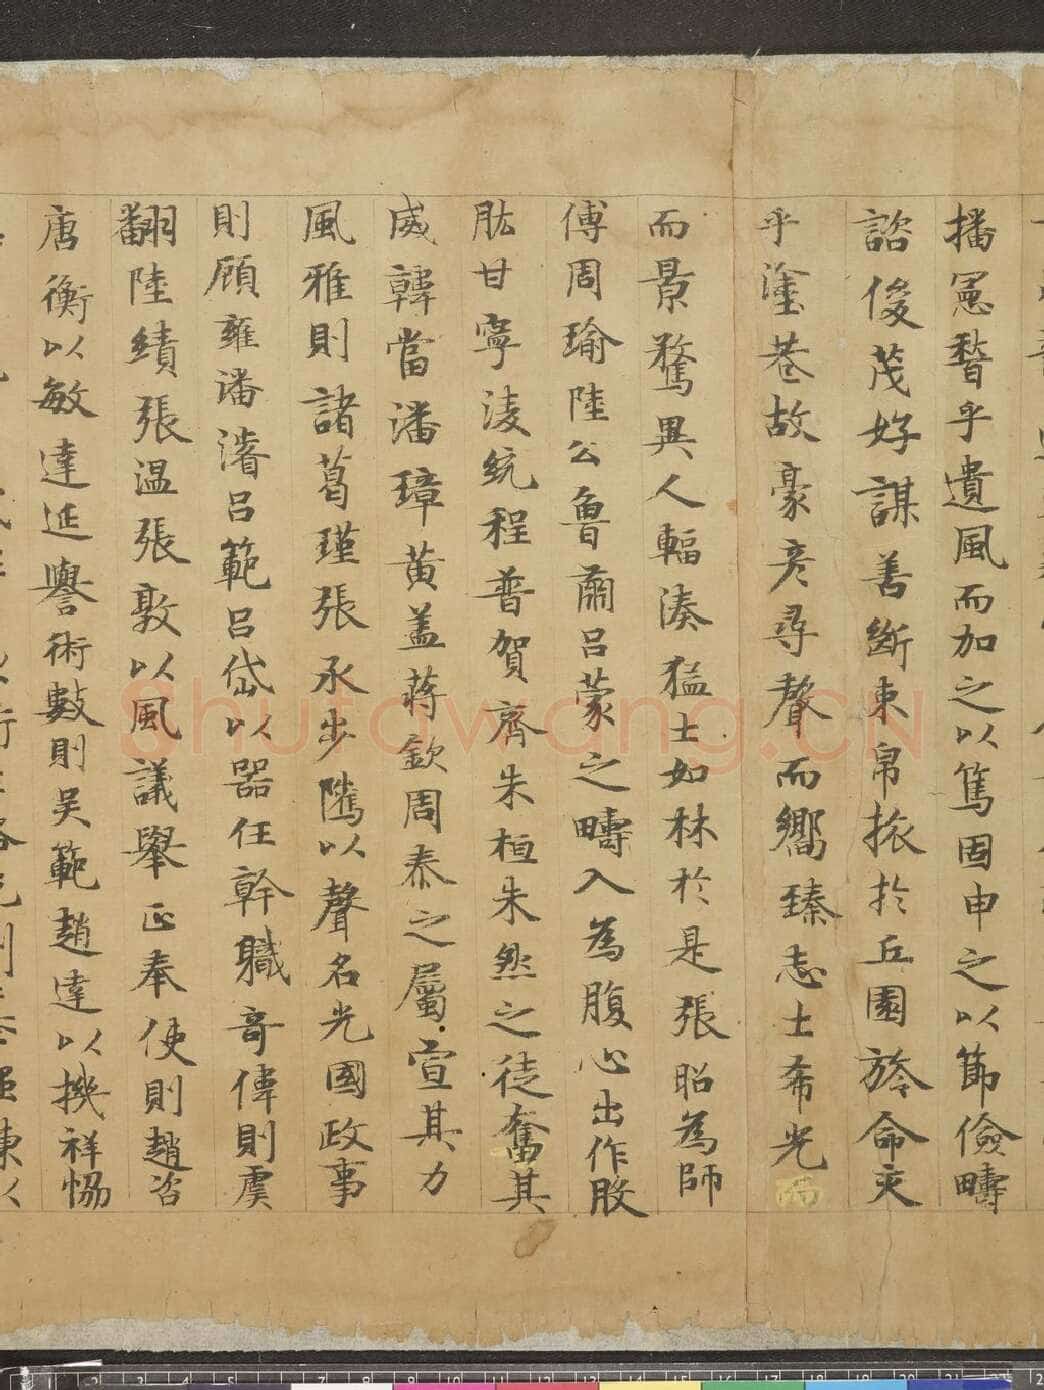 播憲稽乎遺風而加之以篤固申之以節儉疇
諮俊茂好謀善斷束帛振於丘園旍命交
乎塗巷故豪彦尋聲而嚮臻志士希光
而景騖異人輻湊猛士如林於是張昭為師
傅周瑜陸公魯肅呂蒙之疇入為腹心出作股
肱甘寧淩統程普賀齊朱桓朱然之徒奮其
威韓當潘璋黄盖蒋欽周泰之屬宣其力
風雅則諸葛瑾張承步隲以聲名光國政事
則顧雍潘濬呂範呂岱以器任幹職奇偉則虞
翻陸績張温張敦以風議舉正奉使則趙咨
唐衡以敏達延譽術數則吴範趙達以機祥恊
Shufawang.CN